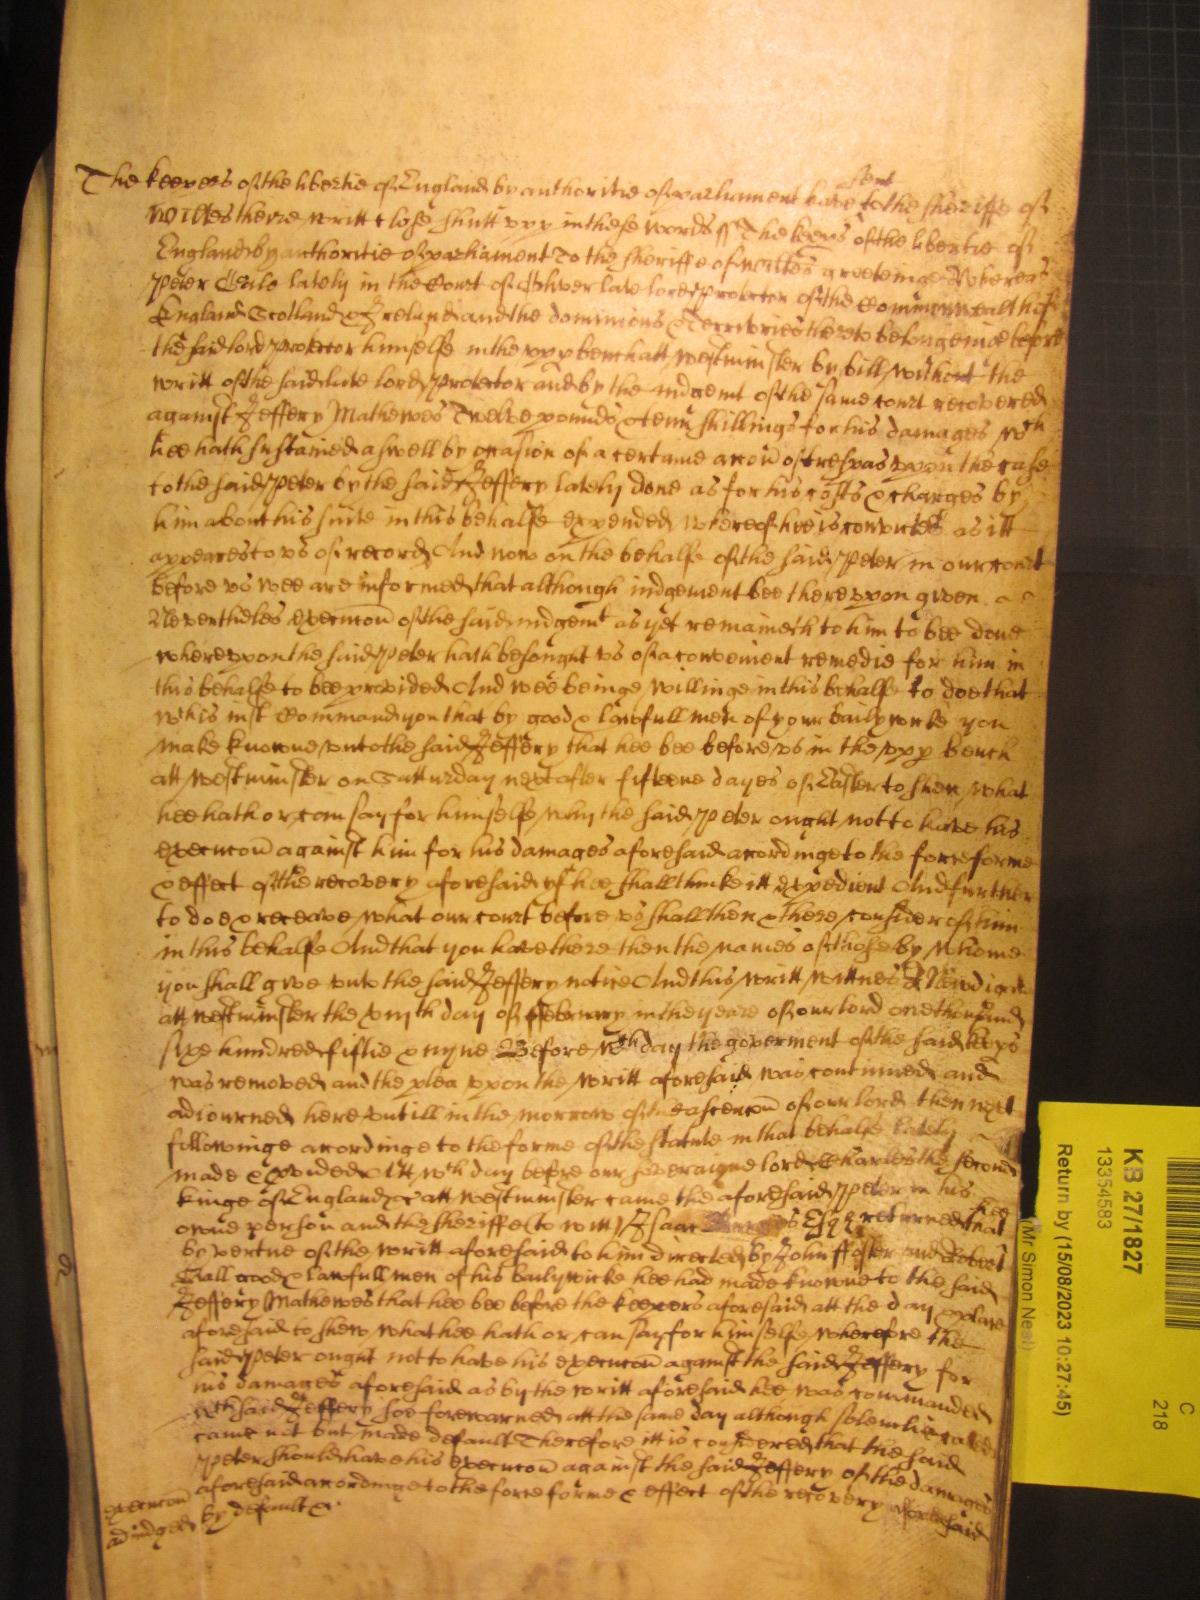 sent
The keepers of the libertie of England by authoritie of parliament have to the sheriffe of
Wiltes theire writt close shutt upp in these words ss The keepers of the libertie of
England by authoritie of parliament To the sheriffe of Wiltes greeteinge Whereas
Peter lately in the Court of Oliver late lord protector of the Commonwealth of
England Scotland & Ireland and the dominions & Territories thereto belonginge before
the said lord protector himselfe in the upp bench att Westminster by bill without the
writt of the said late lord protector and by the iudgemt of the same court recovered
against Jeffery Mathewes Twelve pounds & tenn shillings for his damages wch
hee hath sustained aswell by occasion of a certaine accon of trespas upon the case
to the said Peter by the said Jeffery lately done as for his costs & charges by
him about his suite in this behalfe expended whereof hee is convicted as itt
appeares to us of record And now on the behalfe of the said Peter in our court
before us wee are informed that although iudgement bee thereuppon given
Nevertheles execucon of the said iudgemt as yet remaineth to him to bee done
whereuppon the said Peter hath besought us of a convenient remedie for him in
this behalfe to bee provided And wee beinge willinge in this behalfe to doe that
wch is iust Command you that by good & lawfull men of your bailywicke you
make knowne unto the said Jeffery that hee bee before us in the upp bench
att Westminster on Satturday next after fifteene dayes of Easter to shew what
hee hath or can say for himselfe why the said Peter ought not to have his
execucon against him for his damages aforesaid accordinge to the force forme
& effect of the recovery aforesaid if hee shall thinke itt expedient And further
to doe & receave what our court before us shall then & there consider of him
in this behalfe And that you have there then the names of those by whome
you shall give unto the said Jeffery notice And this writt wittnes R Newdigate
att Westminster the xiiith day of ffebruary in the yeare of our lord one thousand
sixe hundred fiftie & nyne Before wch day the goverment of the said keeps
was removed and the plea uppon the writt aforesaid was continued and
adiourned here untill in the morrow of the ascencon of our lord then next
followinge accordinge to the forme of the statute in that behalfe lately
made & provided Att wch day before our soveraigne lord Charles the second
kinge of England &c att Westminster came the aforesaid Peter in his
owne person and the sheriffe (to witt) Isaac Esqr returned that
by vertue of the writt aforesaid to him directed by John ffoster and Robert
Hall good & lawfull men of his bailywicke hee had made knowne to the said
Jeffery Mathewes that hee bee before the keepers aforesaid att the day & place
aforesaid to shew what hee hath or can say for himselfe wherefore the
said Peter ought not to have his execucon against the said Jeffery for
his damages aforesaid as by the writt aforesaid hee was commanded
wch said Jeffery soe forewarned att the same day although solemlie called
came not but made default Therefore itt is considered that the said
Peter should have his execucon against the said Jeffery of the damages
aforesaid accordinge to the force forme & effect of the recovery aforesaid
by default &c
execucon
adiudged
KB 27/1827
13354583
Return by (15/08/2023 10:27:45)
(Mr Simon Neal)
C
218